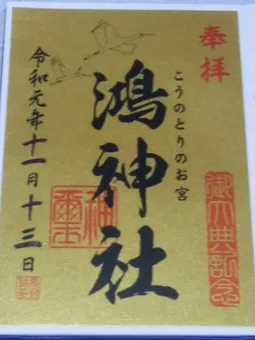 奉拝
こうのとりのお宮
鴻神社
神璽
御大典記念
令和元年十一月十三日